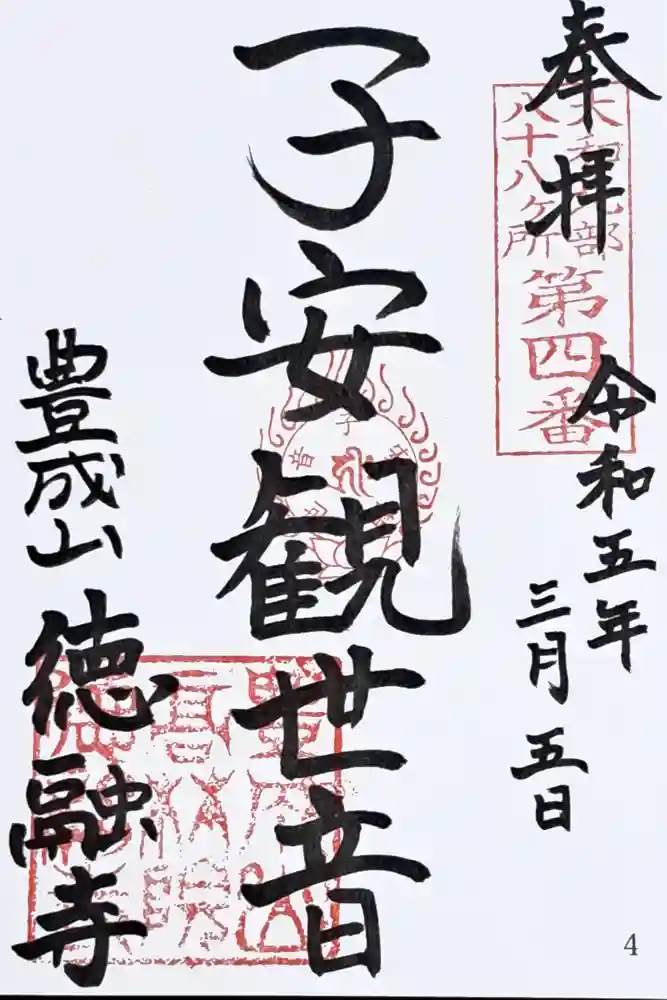 奉拝
大和北部
八十八ヶ所
第四番
令和五年
三月五日
子安観世音
豊成山
徳融寺
4